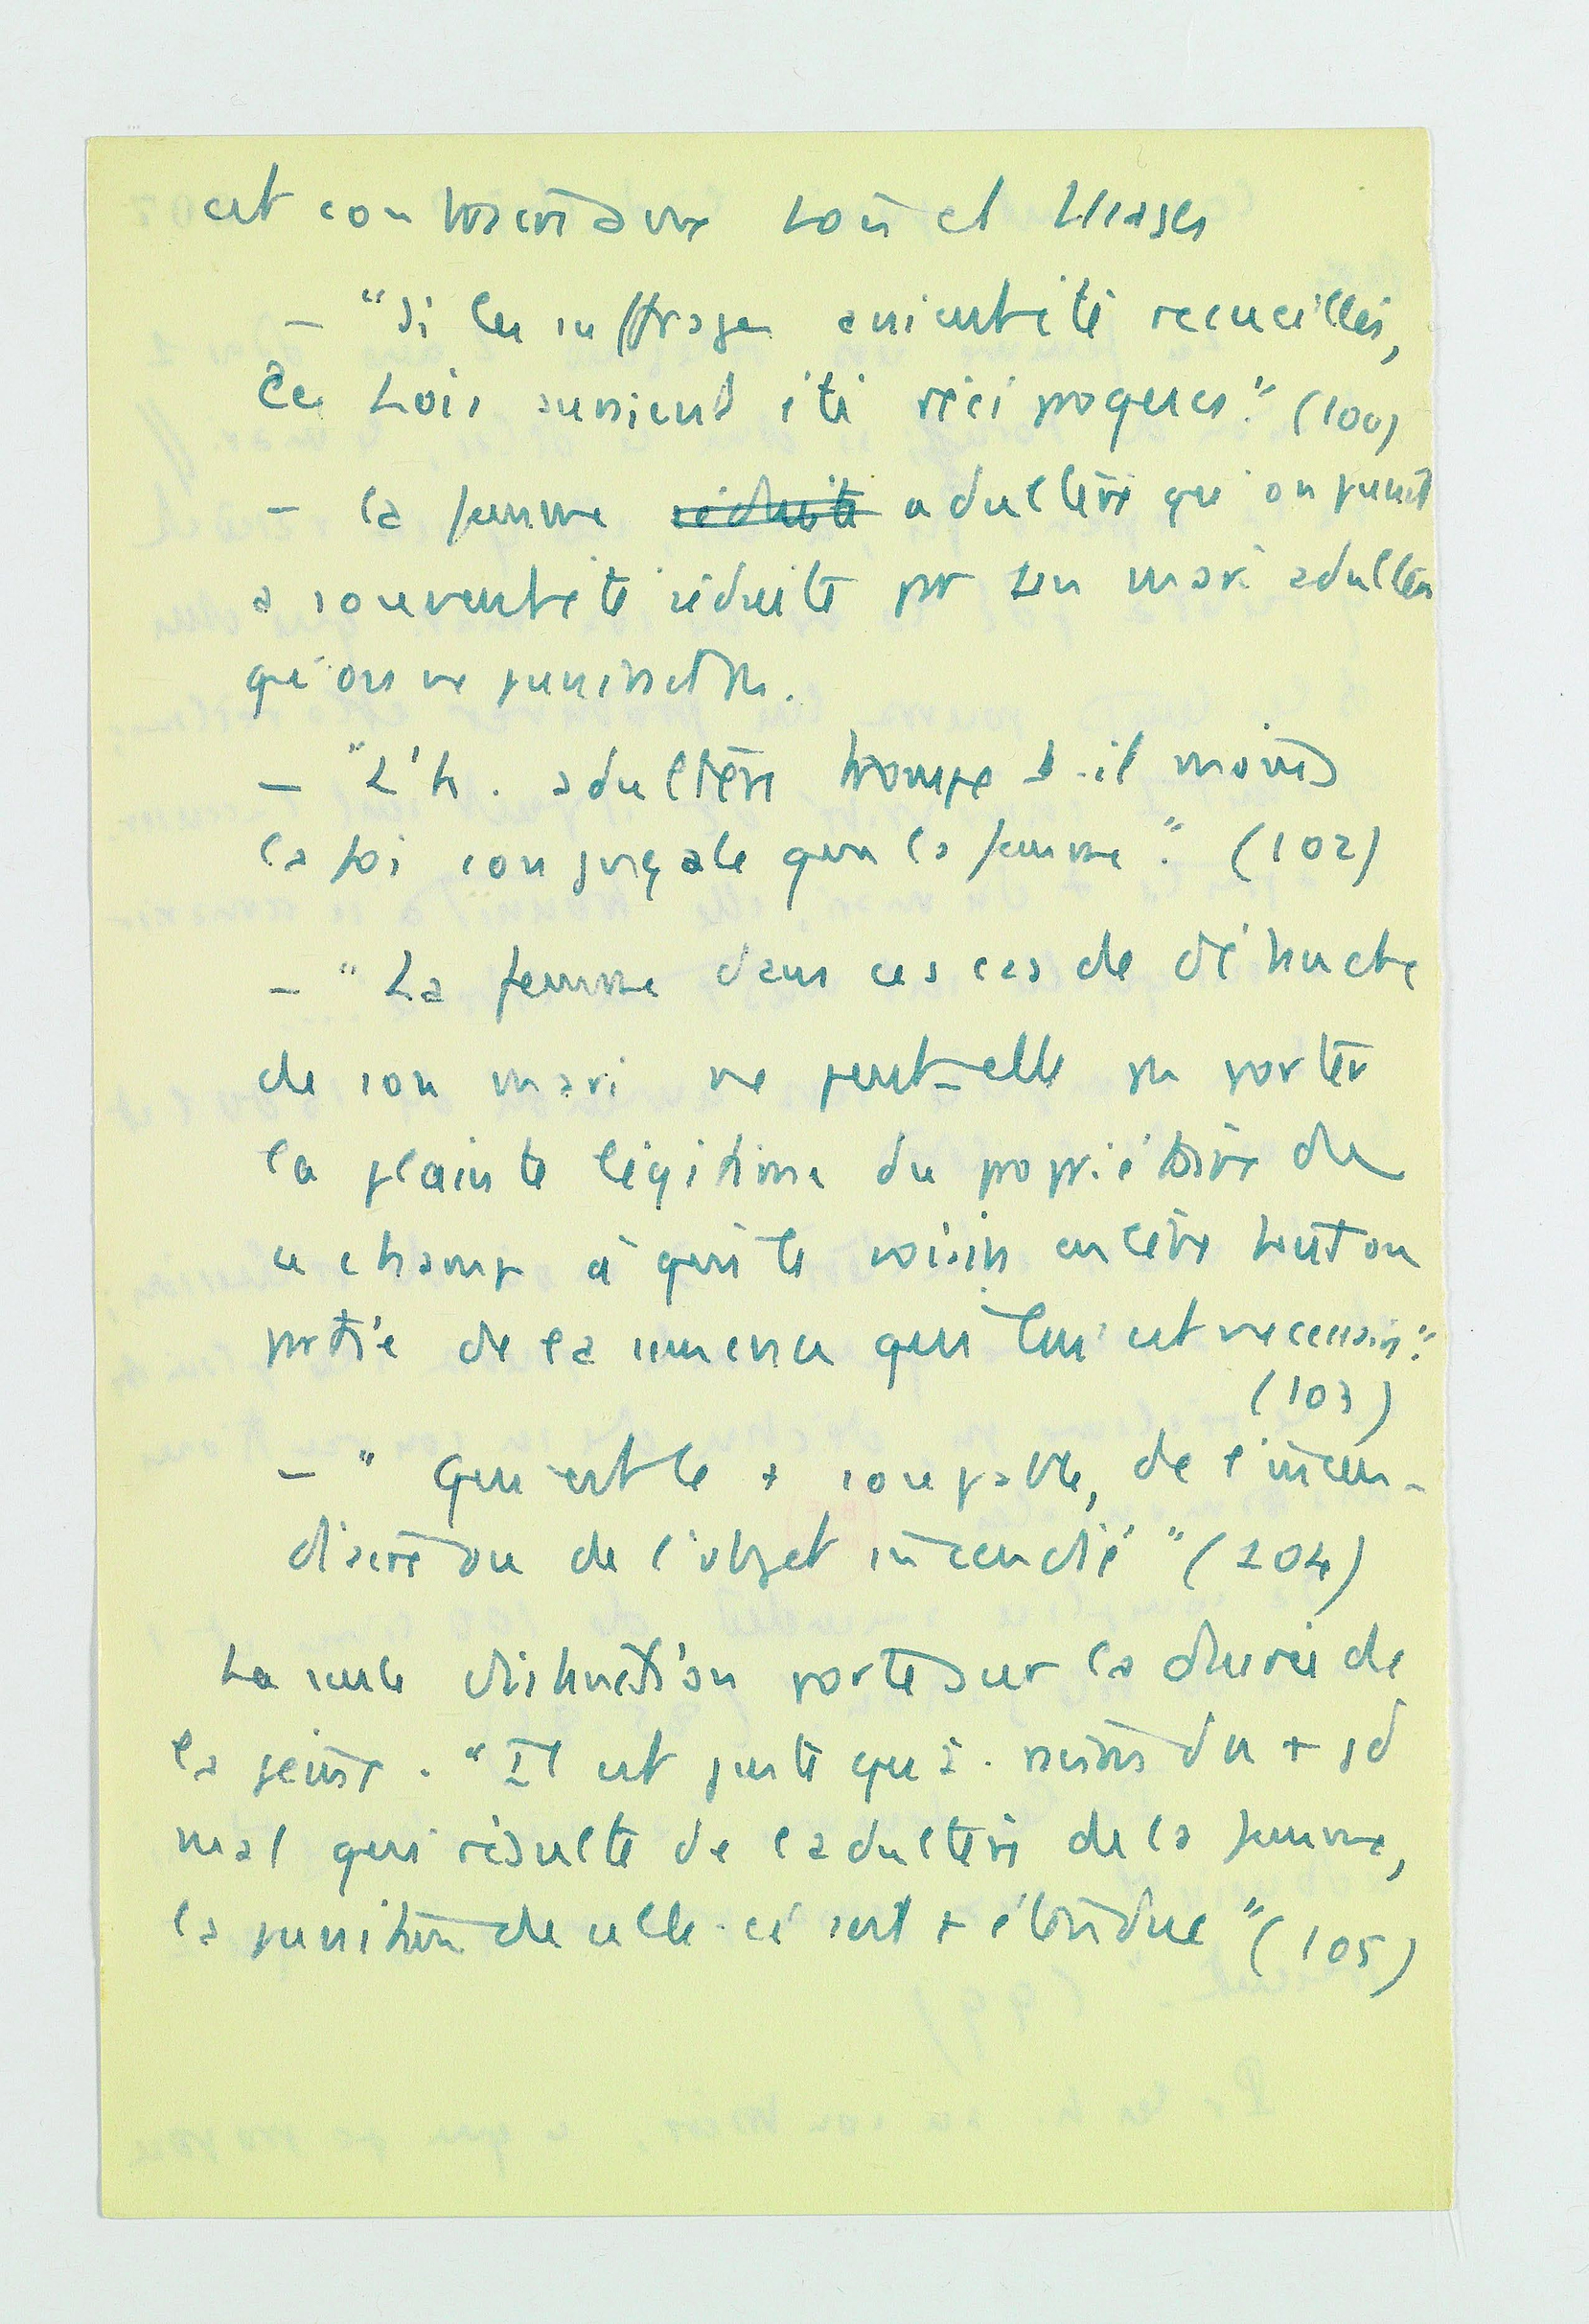 est contraire aux Lois et Usages
– "Si les suffrages avaient été recueillis,
les Lois auraient été réciproques." (100)
– la femme réduite adultère qu'on punit
a souvent été séduite par un mari adultère
qu'on ne punissait pas.
– "L'h. adultère trompe t-il moins
la foi conjugale que la femme." (102)
– "La femme dans ces cas de débauche
de son mari ne peut-elle pas porter
la plainte légitime du propriétaire de
ce champ à qui le voisin enlève tout ou
partie de la semence qui lui est necessaire."
(103)
– " Qui est le + coupable, de l'incen-
diaire ou de l'objet incendié" (104)
La seule distinction porte sur la durée de
la peine. "Il est juste qu'à raison du + gd
mal qui résulte de l'adultère de la femme,
la punition de celle-ci soit + étendue" (105)